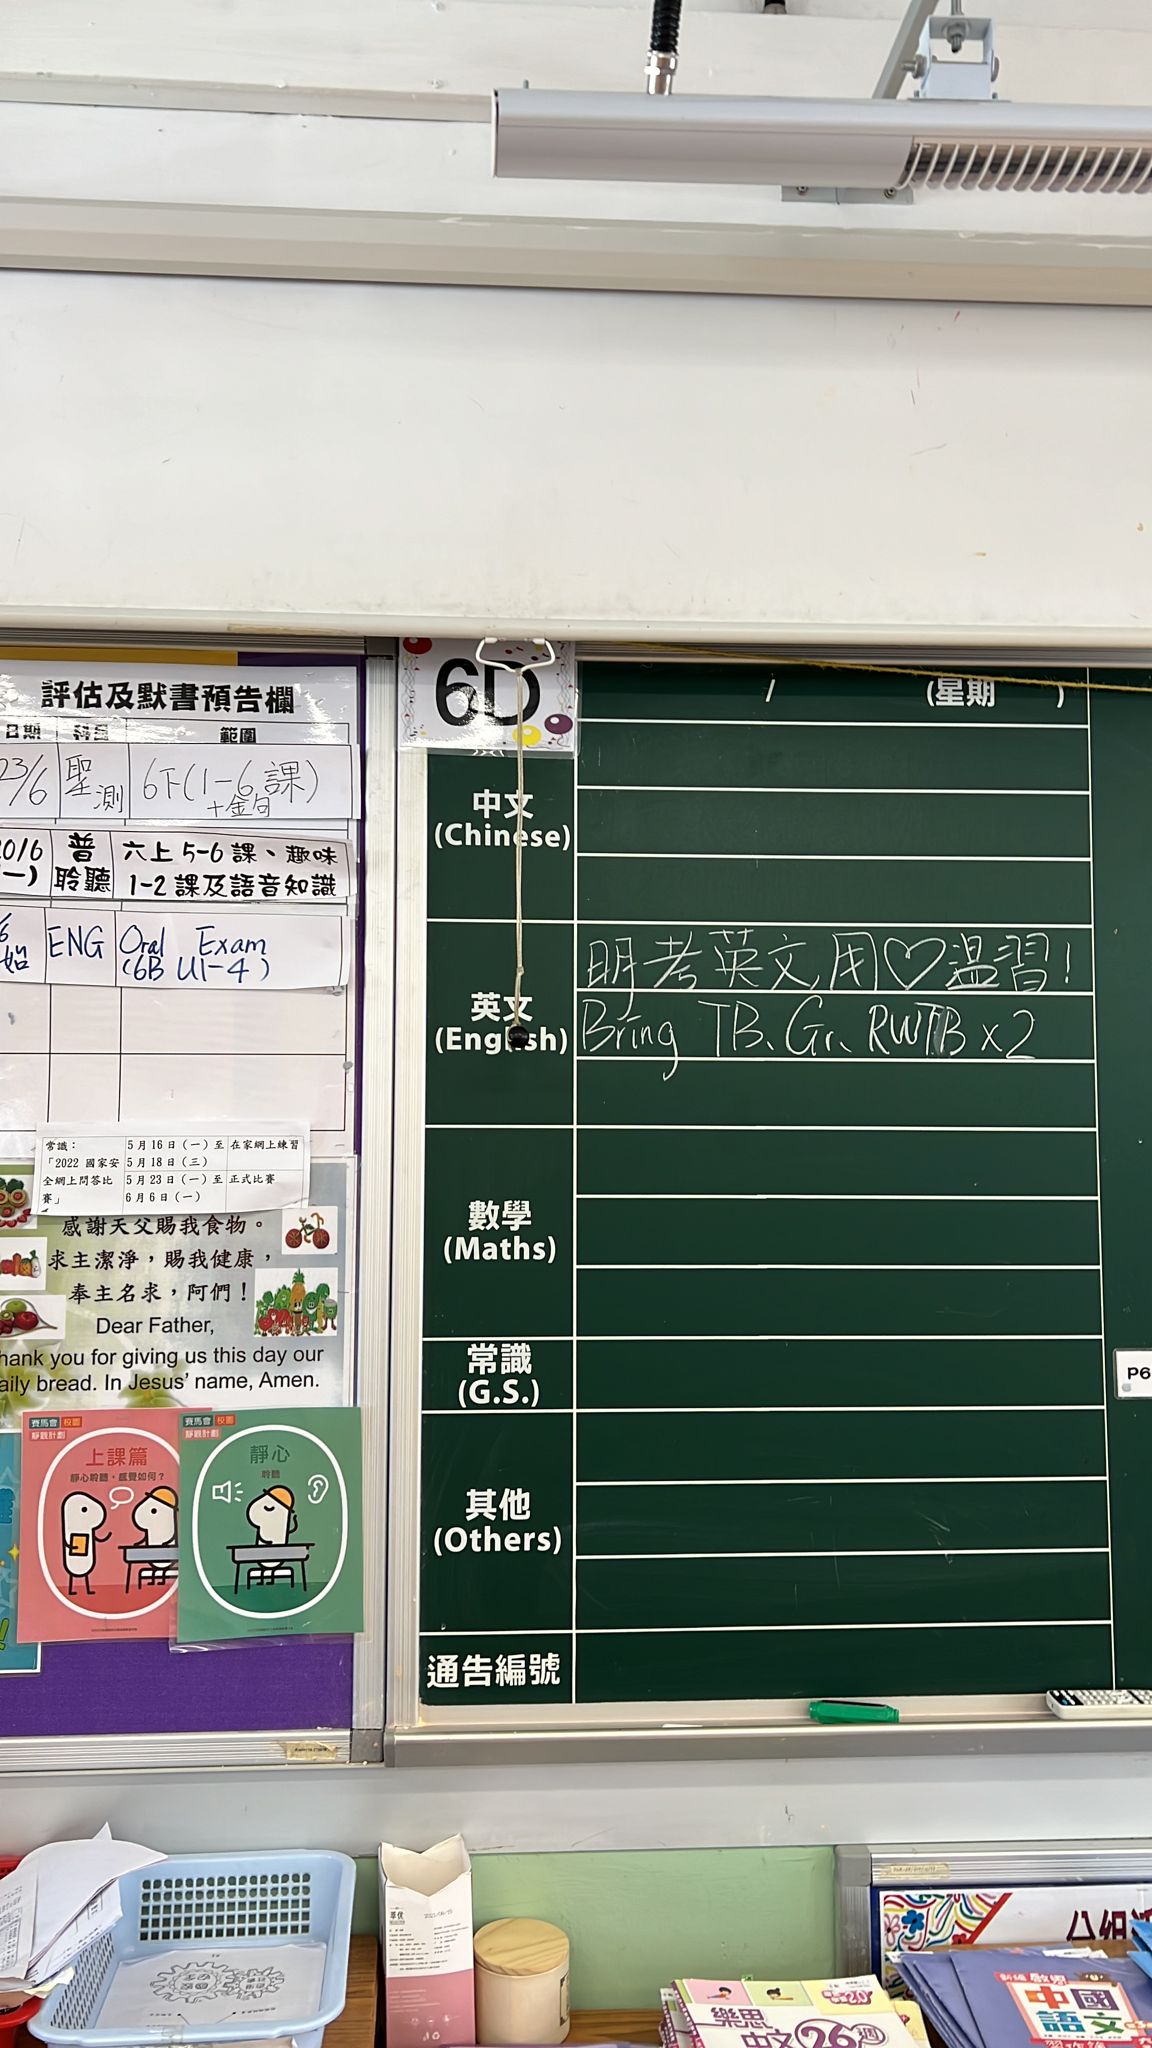 評估及默書預告欄
日期 科目 範圍
23/6 聖測 6下(1-6課)
+金句
20/6 (一) 普聆聽 六上5-6課、趣味
1-2課及語音知識
ENG Oral Exam
(6B U1-4)
常識：
「2022 國家安
全網上問答比
賽」
5月16日（一）至
5月18日（三）
在家網上練習
5月23日（一）至
6月6日（一）
正式比賽
感謝天父賜我食物。
求主潔淨，賜我健康，
奉主名求，阿們！
Dear Father,
hank you for giving us this day our
aily bread. In Jesus' name, Amen.
賽馬會 校園
靜觀計劃
上課篇
靜心聆聽，感覺如何？
賽馬會 校園
靜觀計劃
靜心
聆聽
6D
/ (星期 )
中文
(Chinese)
英文
(English)
明考英文,用♡溫習!
Bring TB、Gr、RWTB x2
數學
(Maths)
常識
(G.S.)
其他
(Others)
通告編號
P6
樂思
中文26週
中國
語文